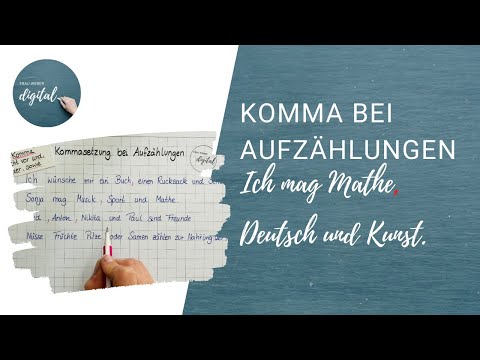 FRAU WEBER
digital
Komma
vor und,
Kommasetzung bei Aufzählungen
digital
Ich wünsche mir ein Buch, einen Rucksack und
Sonja mag Musik, Sport und Mathe.
Anton, Nikita und Paul sind Freunde
Nüsse Früchte Pilze oder Samen zählen zur Nahrung
KOMMA BEI
AUFZÄHLUNGEN
Ich mag Mathe,
Deutsch und Kunst.